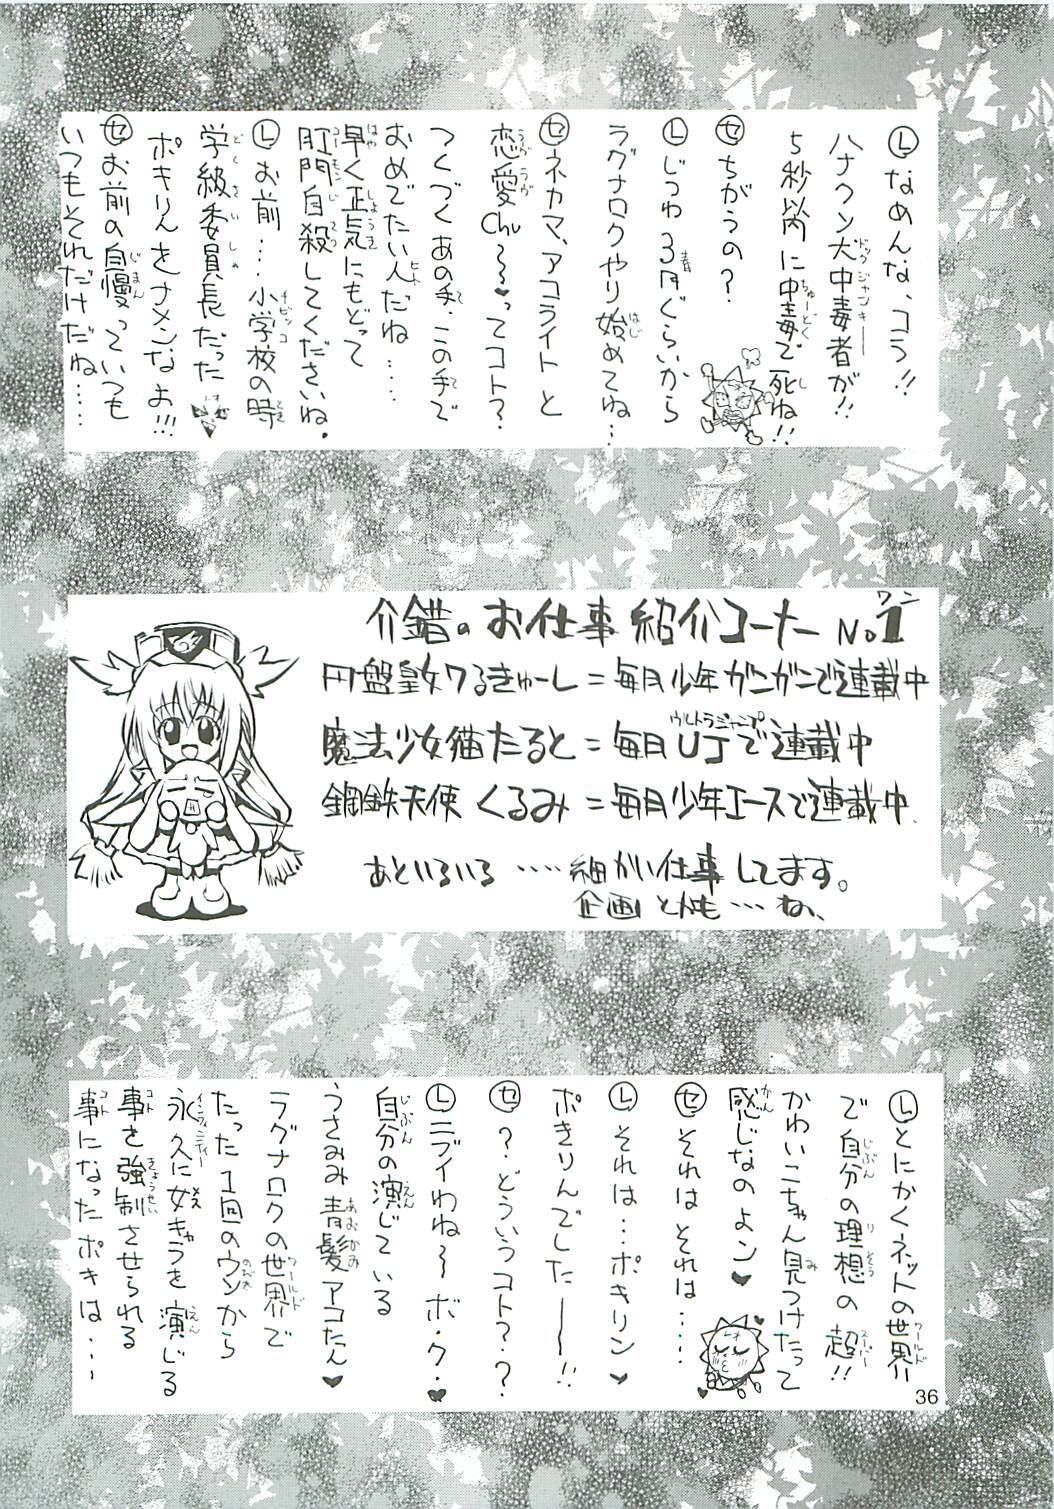 Ⓛなめんな、コラ!!
ハナクソ犬中毒者が!!
5秒以内に中毒で死ね!!
セちがうの?
Ⓛじつわ3月ぐらいから
ラグナロクやり始めてね…
セネカマ、アコライトと
恋愛Chu〜♥ってコト?
つくづくあの手、この手で
おめでたい人だね……
早く正気にもどって
肛門自殺してくださいね。
Ⓛお前…小学校の時
学級委員長だった
ポキりんをナメンなよ!!!
セお前の自慢っていつも
いつもそれだけだね……
介錯のお仕事紹介コーナーNo.1
円盤皇女ワるきゅーレ=毎月少年ガンガンで連載中
魔法少女猫たると=毎月UJで連載中
鋼鉄天使くるみ=毎月少年エースで連載中
あといろいろ……細かい仕事してます。
企画とかも…ね、
Ⓛとにかくネットの世界
で自分の理想の超!!
かわいこちゃん見つけたって
感じなのよン♥
セそれはそれは……
Ⓛそれは…ポキリン♥
ポきりんでしたーー!!
セ?どういうコト??
Ⓛニブイわね〜ボ・ク・♥
自分の演じている
うさみみ青髪アコたん♥
ラグナロクの世界で
たった1回のウソから
永久に女キャラを演じる
事を強制させられる
事になったポキは……
36